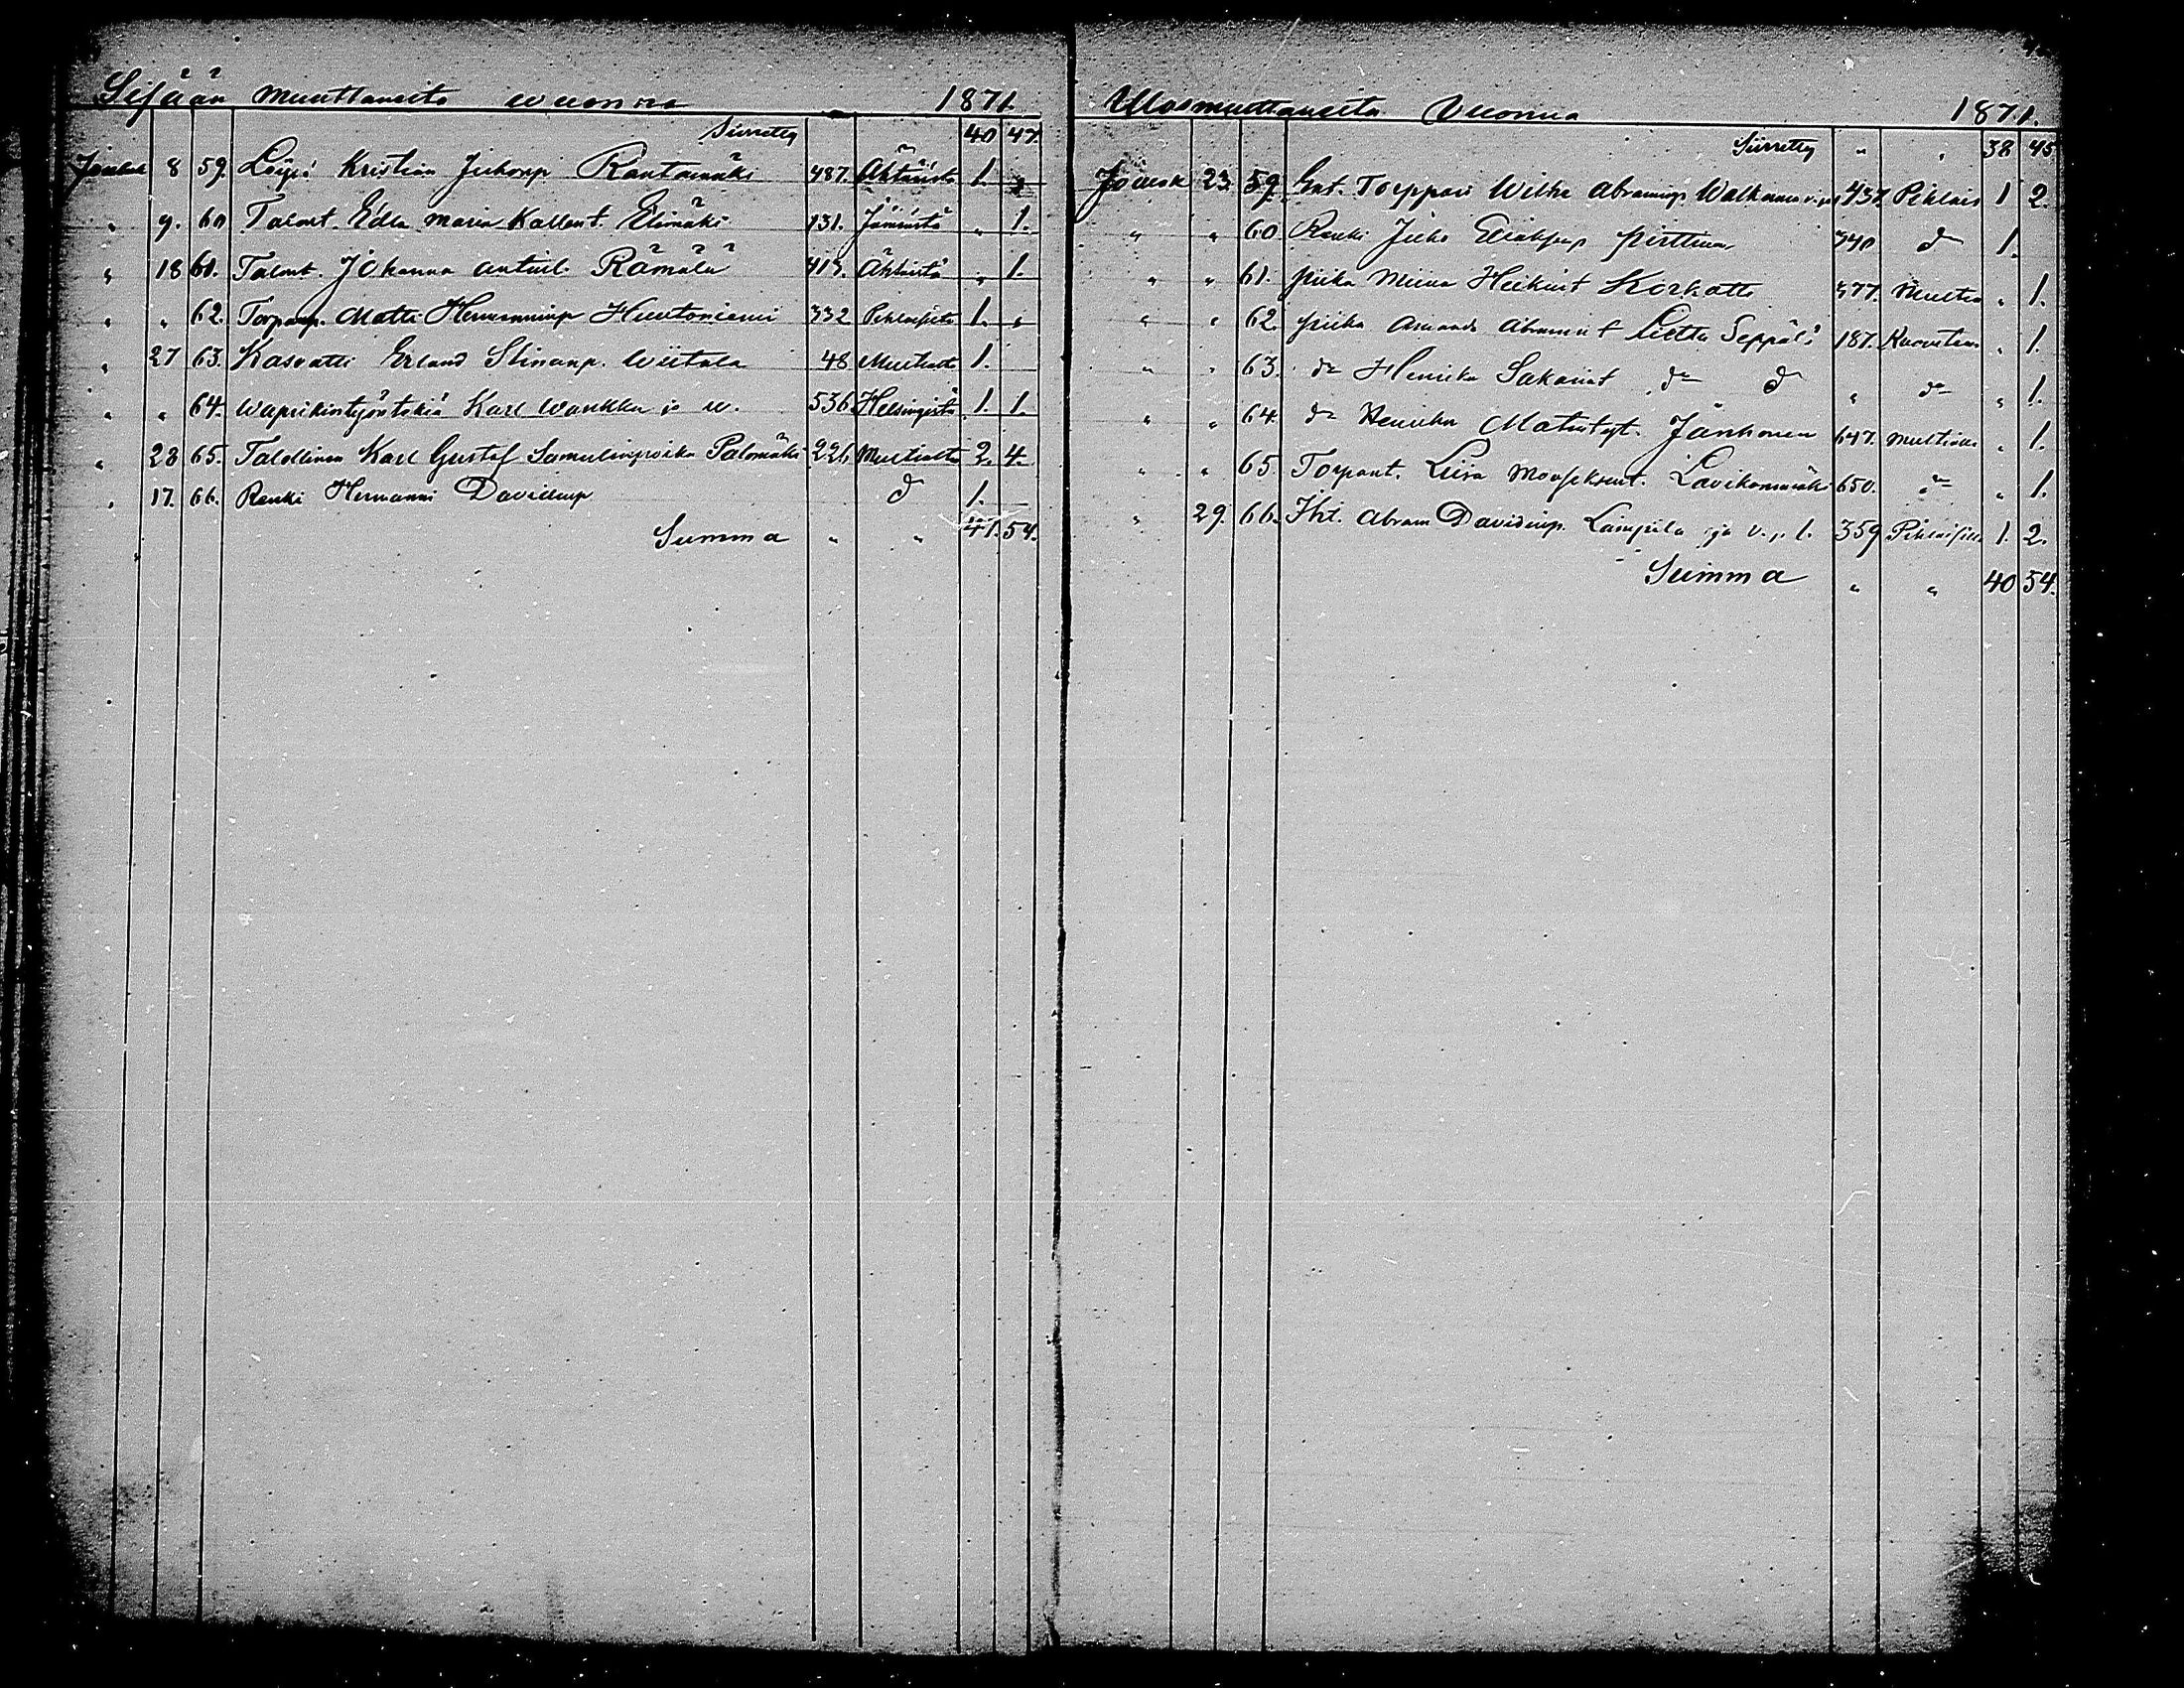 Sisään muuttaneita wuonna 1871.
Siirretty 40 47.
Jouluk 8 59. Kristian Juhonp. Rantamäki 487. Ähtäristä 1.
" 9. 60 Talont. Edla Maria Kallent. Elimäki 131. " 1.
" 18 61. Talont. Johanna Antint. Rämälä 413. Ähtäristä " 1.
" " 62. Torpanp. Matti Hermanninp Huutoniemi 332 1. "
" 27 63. Kasvatti Erland Stinanp. Wiitala 48 Multialta 1.
" " 64. Karl ja w. 536 Helsingistä 1. 1.
" 28 65. Talollinen Karl Gustaf Samulinpoika Palomäki 226 Multialta 2. 4.
" 17. 66. Renki Hermanni Davidinp d:o 1.
Summa " " 41. 54.
Ulosmuuttaneita Vuonna 1871.
Siirretty " " 38 45
Jouluk 23. 59. Ent. Torppari Wilhe Abraminp. 437. Pihlais 1 2.
" " 60. Renki Juho Eliaksenp Perttina 340 d:o 1.
" " 61. Piika Miina Heikint Korkatti 377. Multia " 1.
" " 62. Piika Amanda Abramint Seppälä 187. " 1.
" " 63. d:o Henrika Sakarint d:o d:o " d:o " 1.
" " 64. d:o Henrika Matintyt. Jänkonen 647. Multialle " 1.
" " 65. Torpant. Liisa Mooseksent. Lavikonmäki 650. d:o " 1.
" 29. 66. Abram Davidinp. Lampila ja v. j. l. 359 1. 2.
Summa " " 40 54.